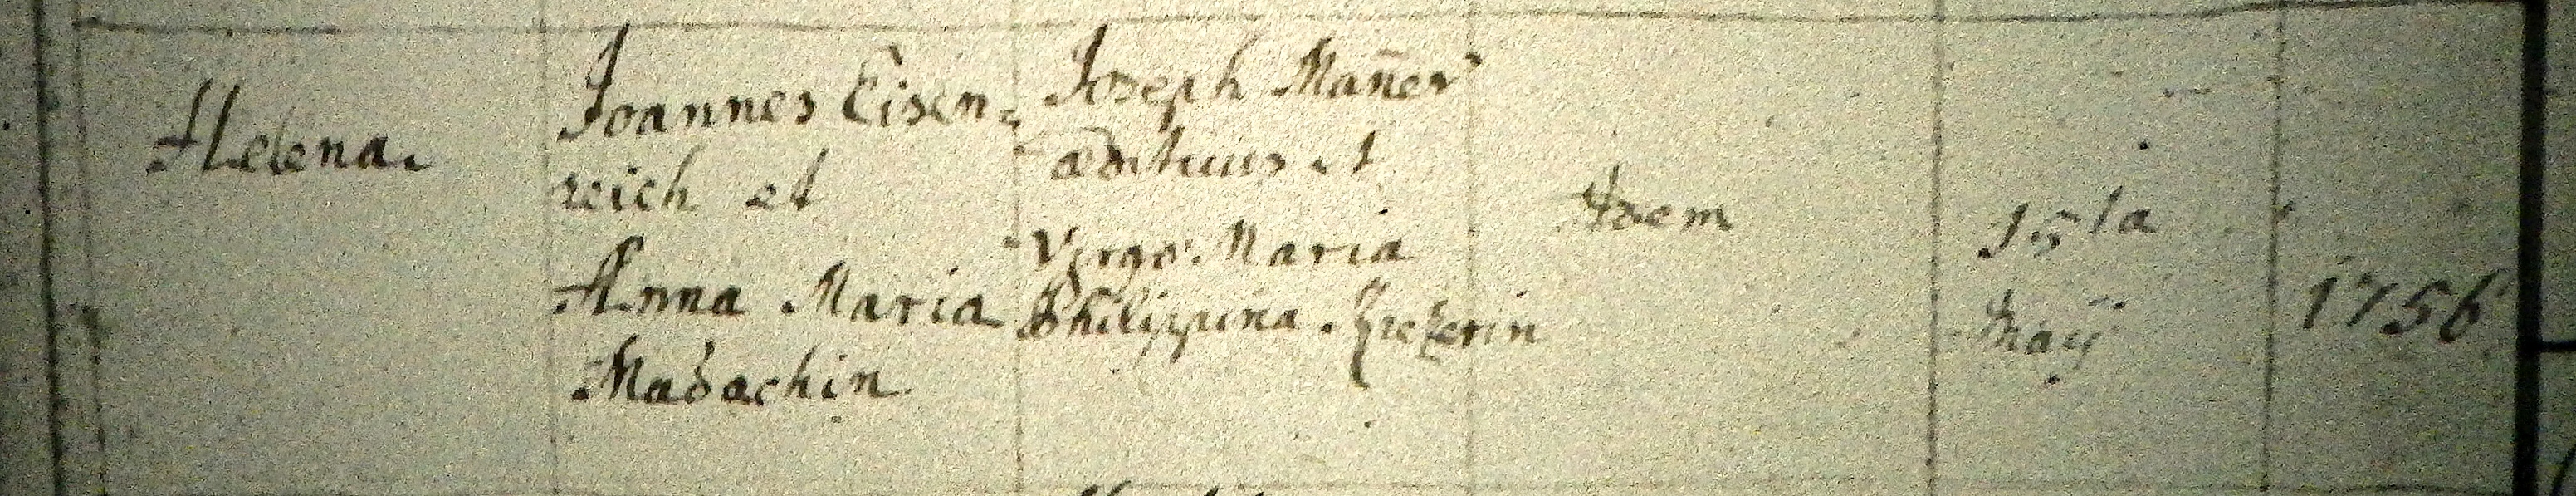 Helena.
Joannes Eisen=
reich et
Anna Maria
Madachin
Joseph Mañer
ædituus et
Virgo Maria
Philippina
Idem
15ta
Maÿ
1756